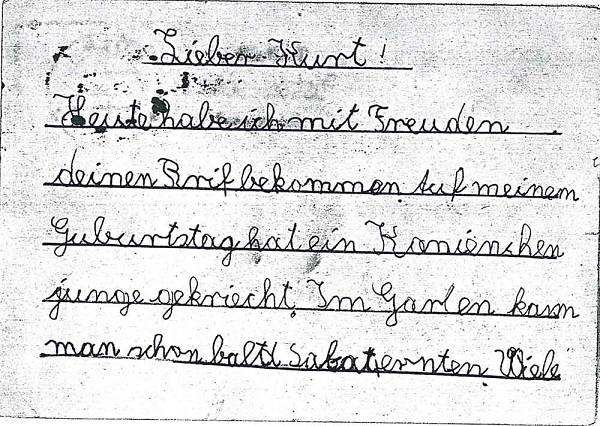 Lieber Kurt!
Heute habe ich mit Freuden
deinen Brif bekommen. Auf meinem
Guburtstag hat ein Kanienchen
junge gekriecht. Im Garten kann
man schon baltd Salat ernten Viele